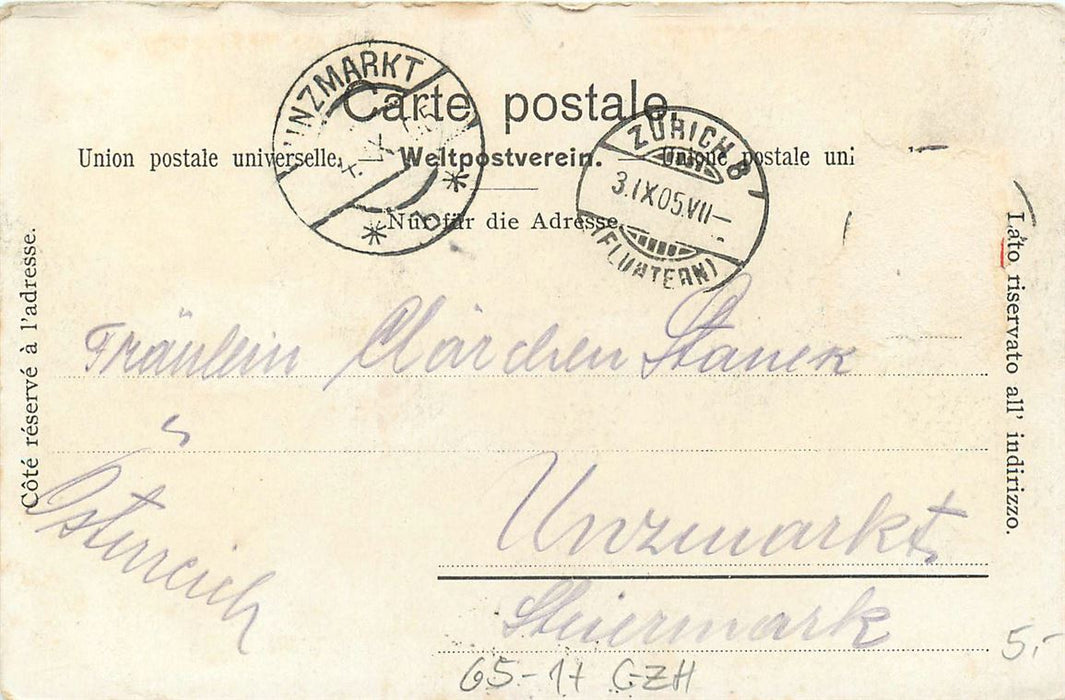 Carte postale.
Union postale universelle. — Weltpostverein. — Unione postale uni
Nur für die Adresse.
UNZMARKT
ZÜRICH 8
3.IX.05.VII–
(FLUNTERN)
Côté réservé à l'adresse.
Lato riservato all' indirizzo.
Fräulein Clärchen Stanek
Österreich
Unzmarkt
Steiermark
65-17 GZH
5.-